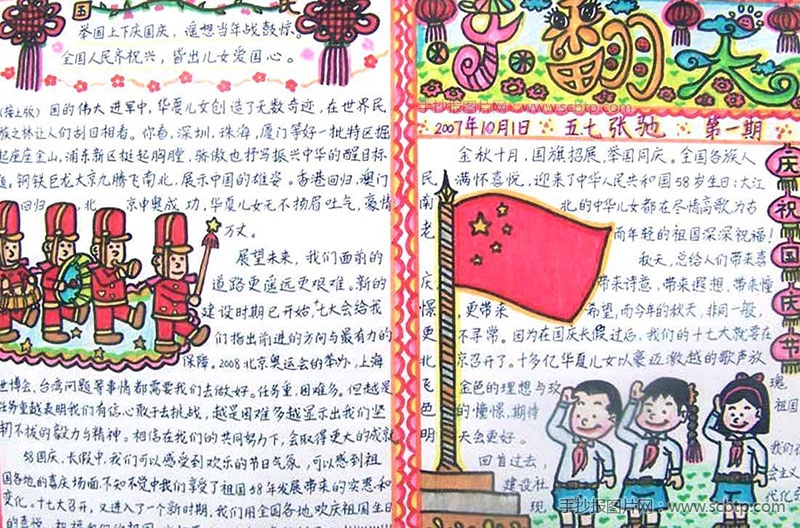 五
民
举国上下庆国庆，遥想当年战鼓惊。
全国人民齐祝兴，皆出儿女爱国心。
(接上版) 国的伟大进军中，华夏儿女创造了无数奇迹，在世界民
族之林让人们刮目相看。你看，深圳，珠海，厦门等好一批特区掘
起座座金山，浦东新区挺起胸膛，骄傲也抒写振兴中华的醒目标
题。钢铁巨龙大京九腾飞南北，展示中国的雄姿。香港回归，澳门
回归 北京申奥成功，华夏儿女无不扬眉吐气，豪情
万丈。
展望未来，我们面前的
道路更遥远更艰难。新的
建设时期已开始，十七大会给我
们指出前进的方向与最有力的
保障。2008北京奥运会的举办，上海
世博会，台湾问题等事情都需要我们去做好。任务重，困难多。但越是
任务重越表明我们有信心敢于去挑战，越是困难多越显示出我们坚
韧不拔的毅力与精神。相信在我们的共同努力下，会取得更大的成就
58国庆，长假中，我们可以感受到欢乐的节日气氛，可以感到祖
国各地的喜庆场面，不知不觉中我们享受了祖国58年发展带来的实惠和
变化。十七大召开，又进入了一个新时期，我们用全国各地欢庆祖国生日
手抄报图片网：www.scbtp.com
2007年10月1日 五七张驰 第一期
庆祝国庆节
金秋十月，国旗招展，举国同庆。全国各族人
民满怀喜悦，迎来了中华人民共和国58岁生日：大江
南 北的中华儿女都在尽情高歌为古
老 而年轻的祖国深深祝福！
秋天，总给人们带来喜
庆 带来诗意，带来遐想，带来憧
憬，更带来 希望，而今年的秋天，非同一般，
更 不寻常。因为在国庆长假过后，我们的十七大就要在
北 京召开了。十多亿华夏儿女以豪迈激越的歌声放
飞 金色的理想与玫瑰
色 的憧憬，期待 祖国
明 天会更好。
回首过去， 我们
建设社 会主义
现 代化
手抄报图片网：www.scbtp.com